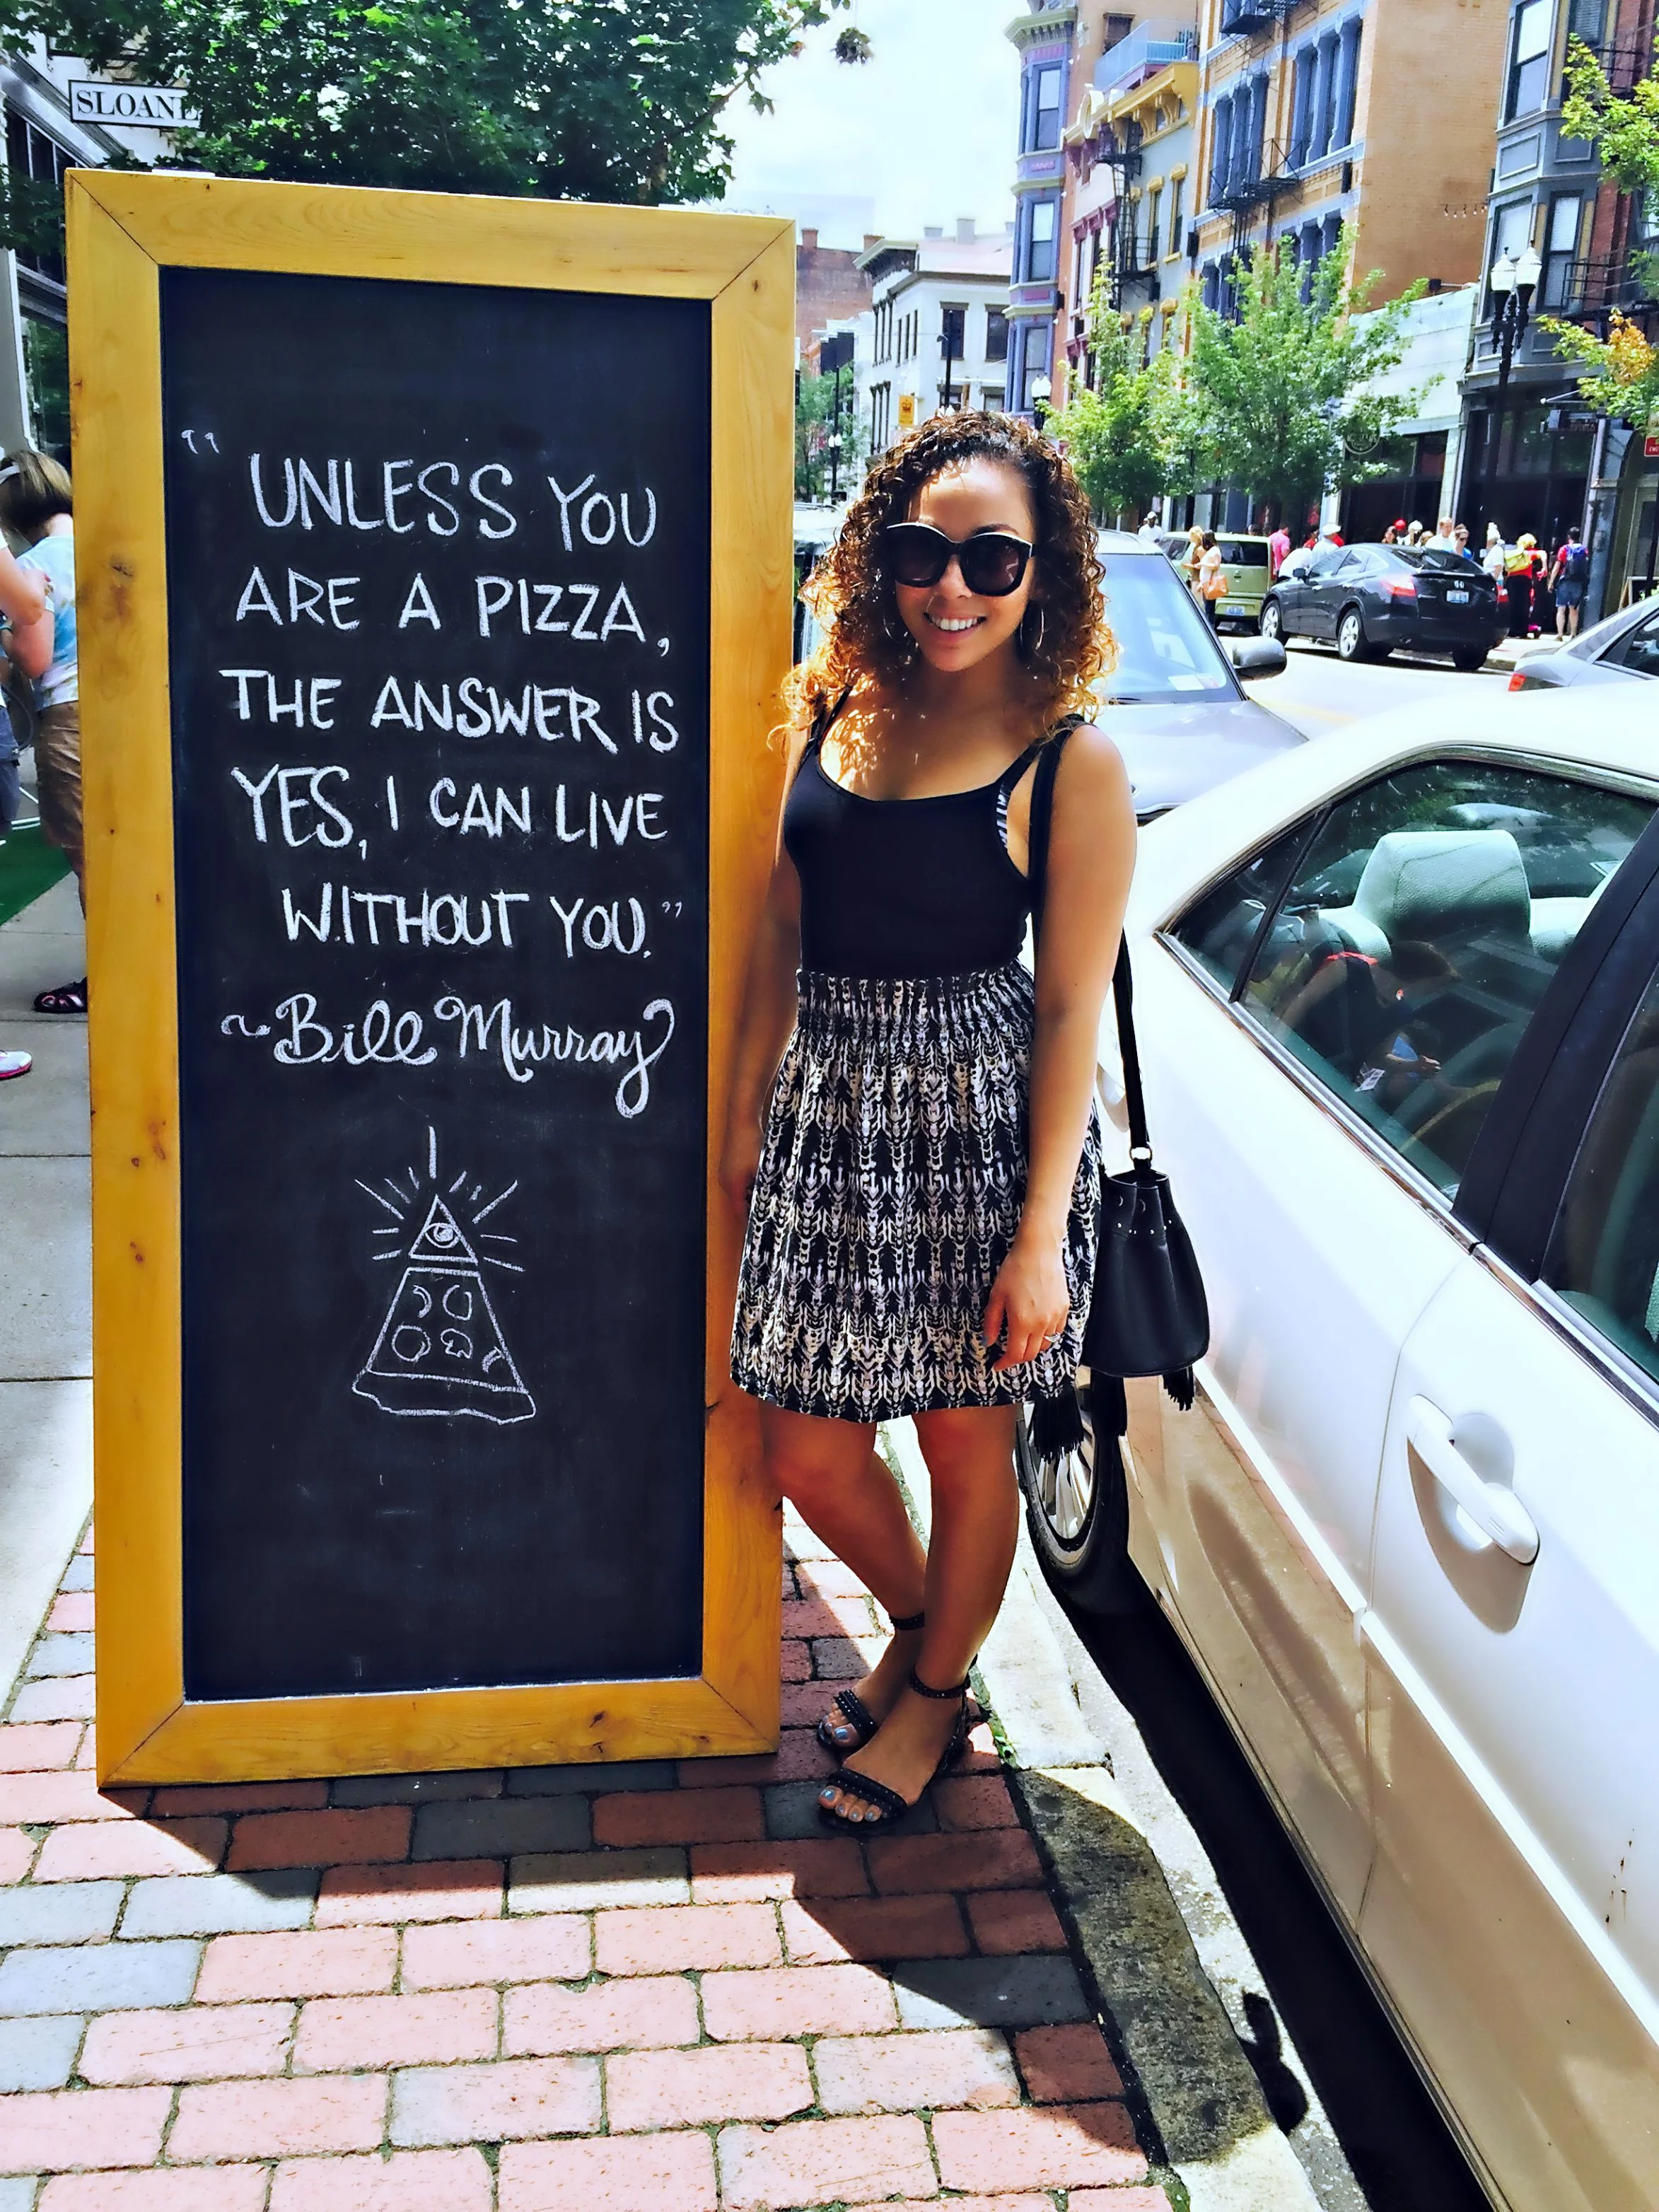 SLOANE
"UNLESS YOU
ARE A PIZZA,
THE ANSWER IS
YES, I CAN LIVE
WITHOUT YOU."
~Bill Murray